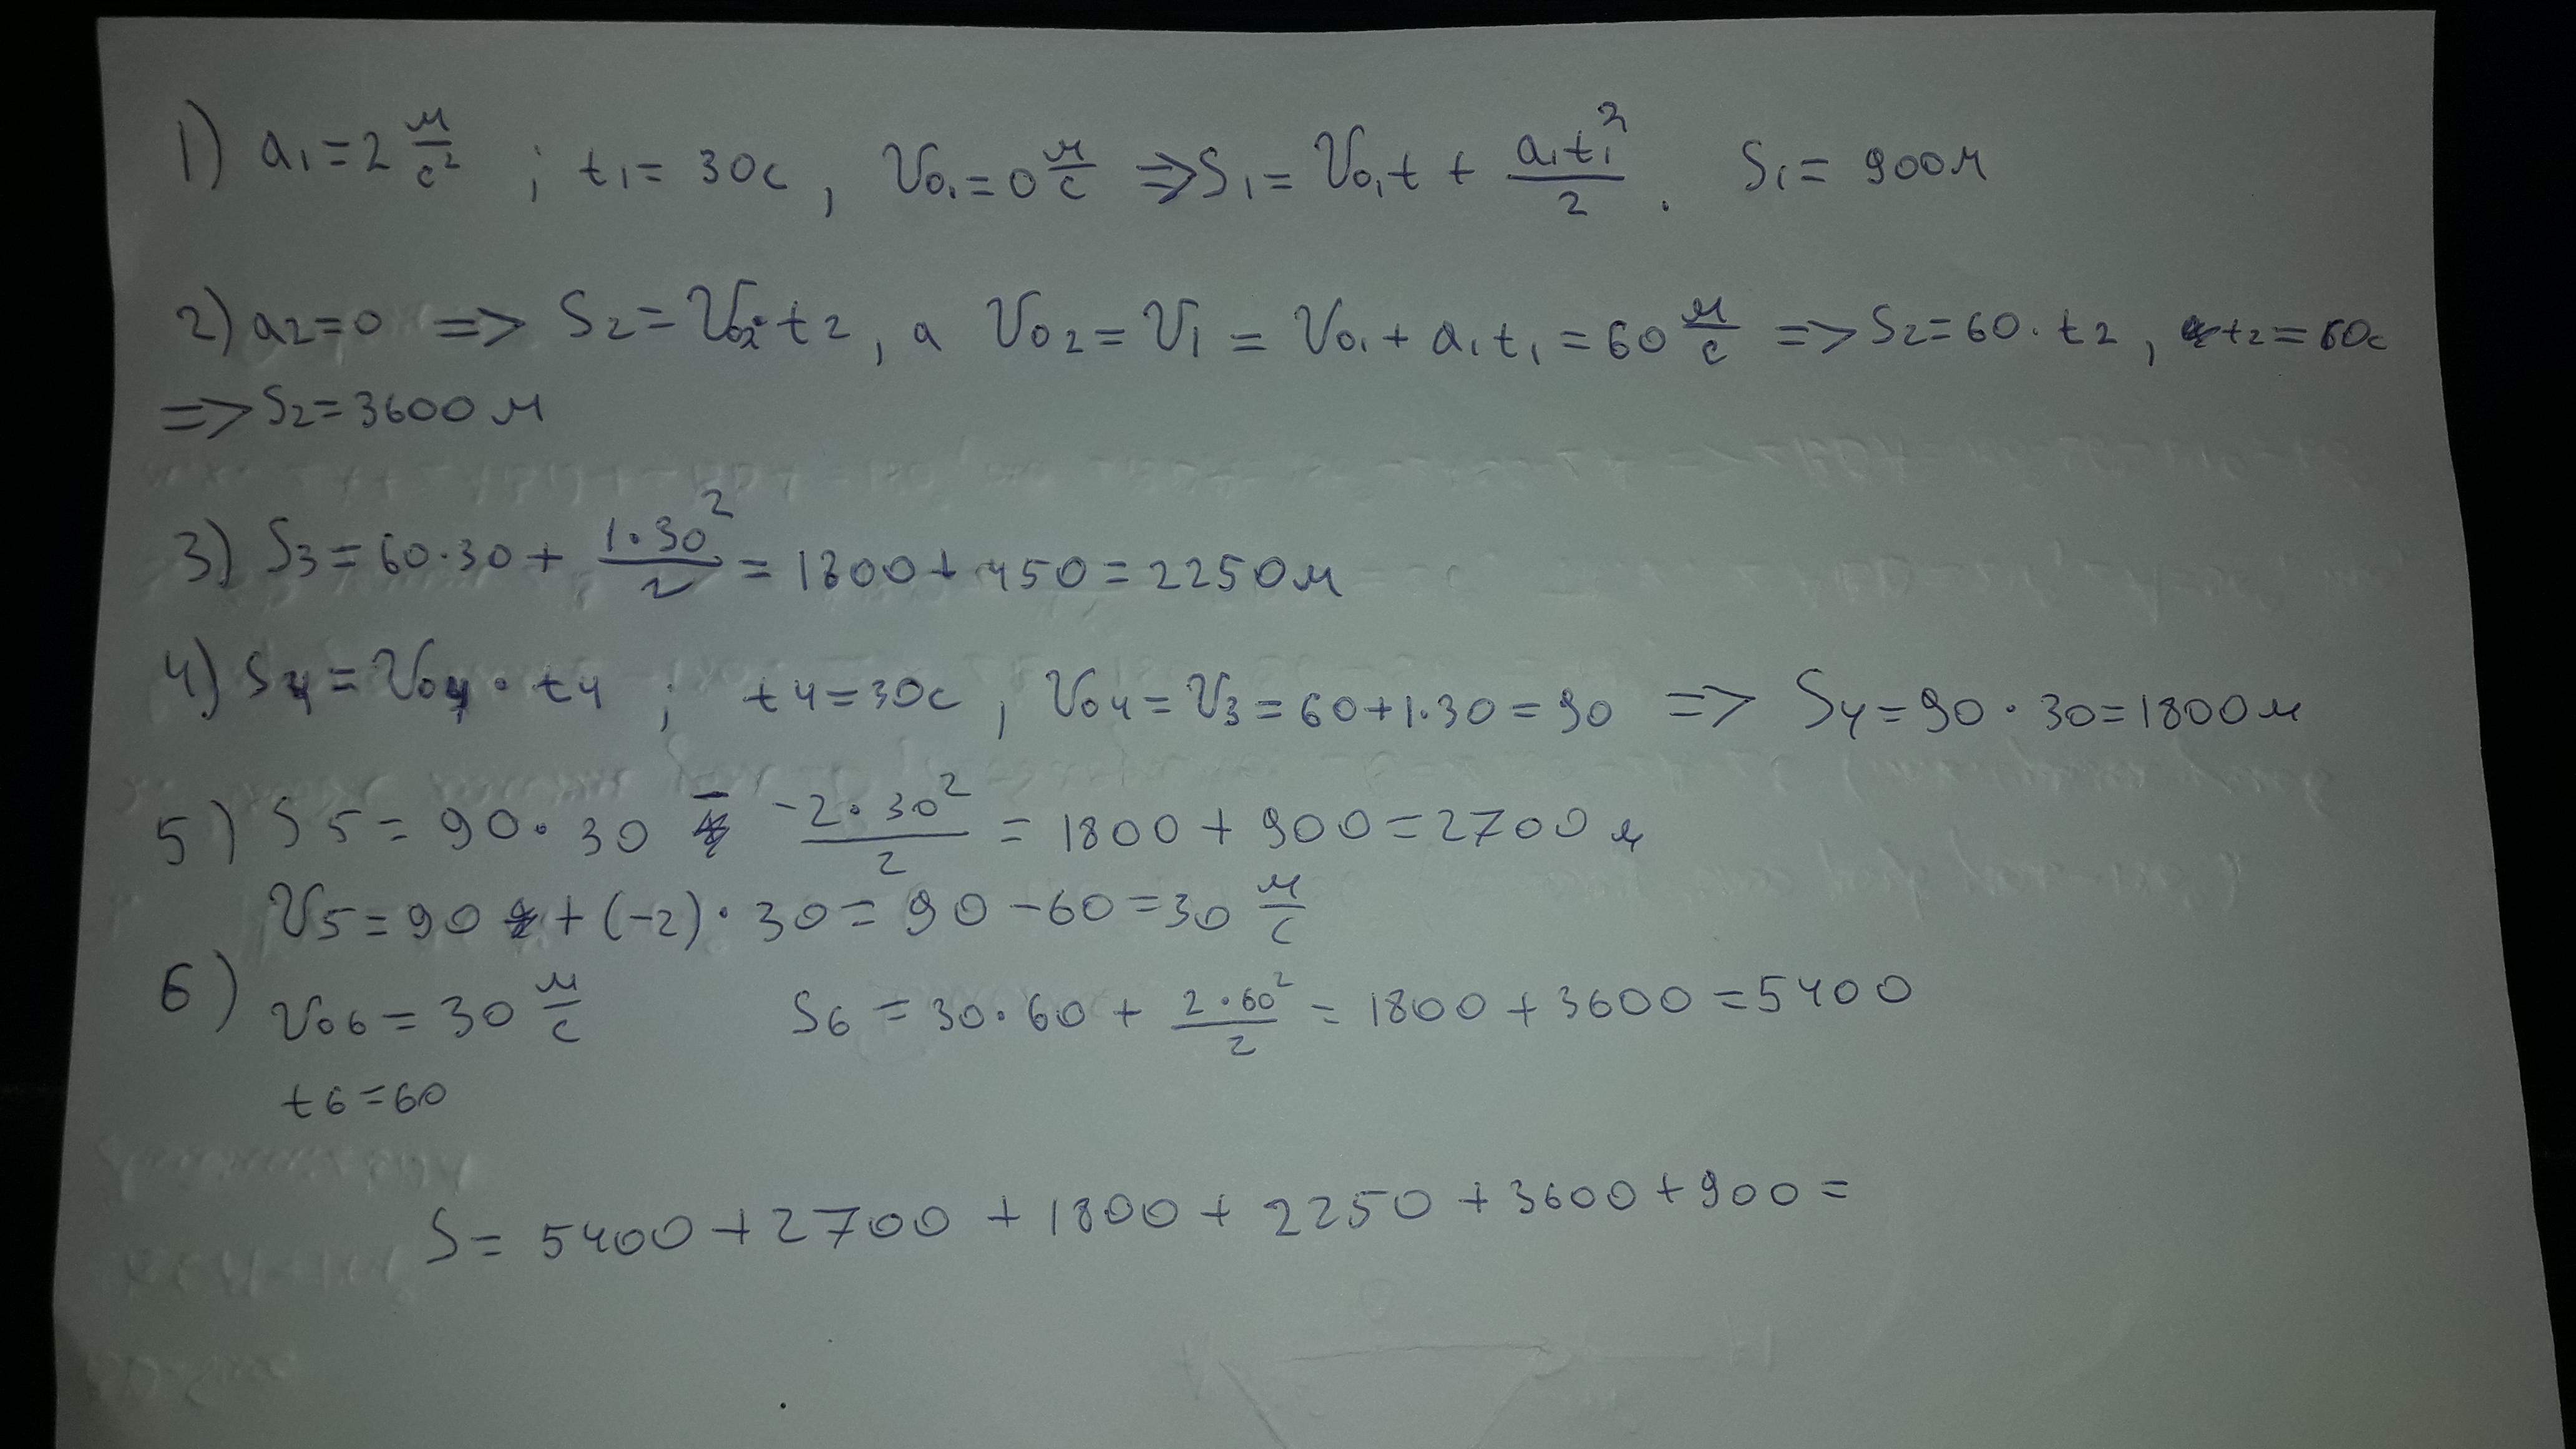 1) a₁=2 м/с² ; t₁= 30с , V₀₁=0 м/с => S₁= V₀₁t + a₁t₁²/2 . S₁= 900м
2) a₂=0 => S₂=V₀₂·t₂ , а V₀₂=V₁= V₀₁+a₁t₁=60 м/с => S₂=60·t₂ , t₂=60с
=> S₂=3600 м
3) S₃=60·30+ 1·30²/2 = 1800+450=2250м
4) S₄=V₀₄·t₄ ; t₄=30с , V₀₄=V₃=60+1·30=90 => S₄=90·30=1800м
5) S₅= 90·30 - -2·30²/2 = 1800+900=2700 м
V₅=90 +(-2)·30=90-60=30 м/с
6) V₀₆=30 м/с S₆ =30·60+ 2·60²/2 = 1800+3600=5400
t₆=60
S= 5400+2700 +1800+2250+3600+900=